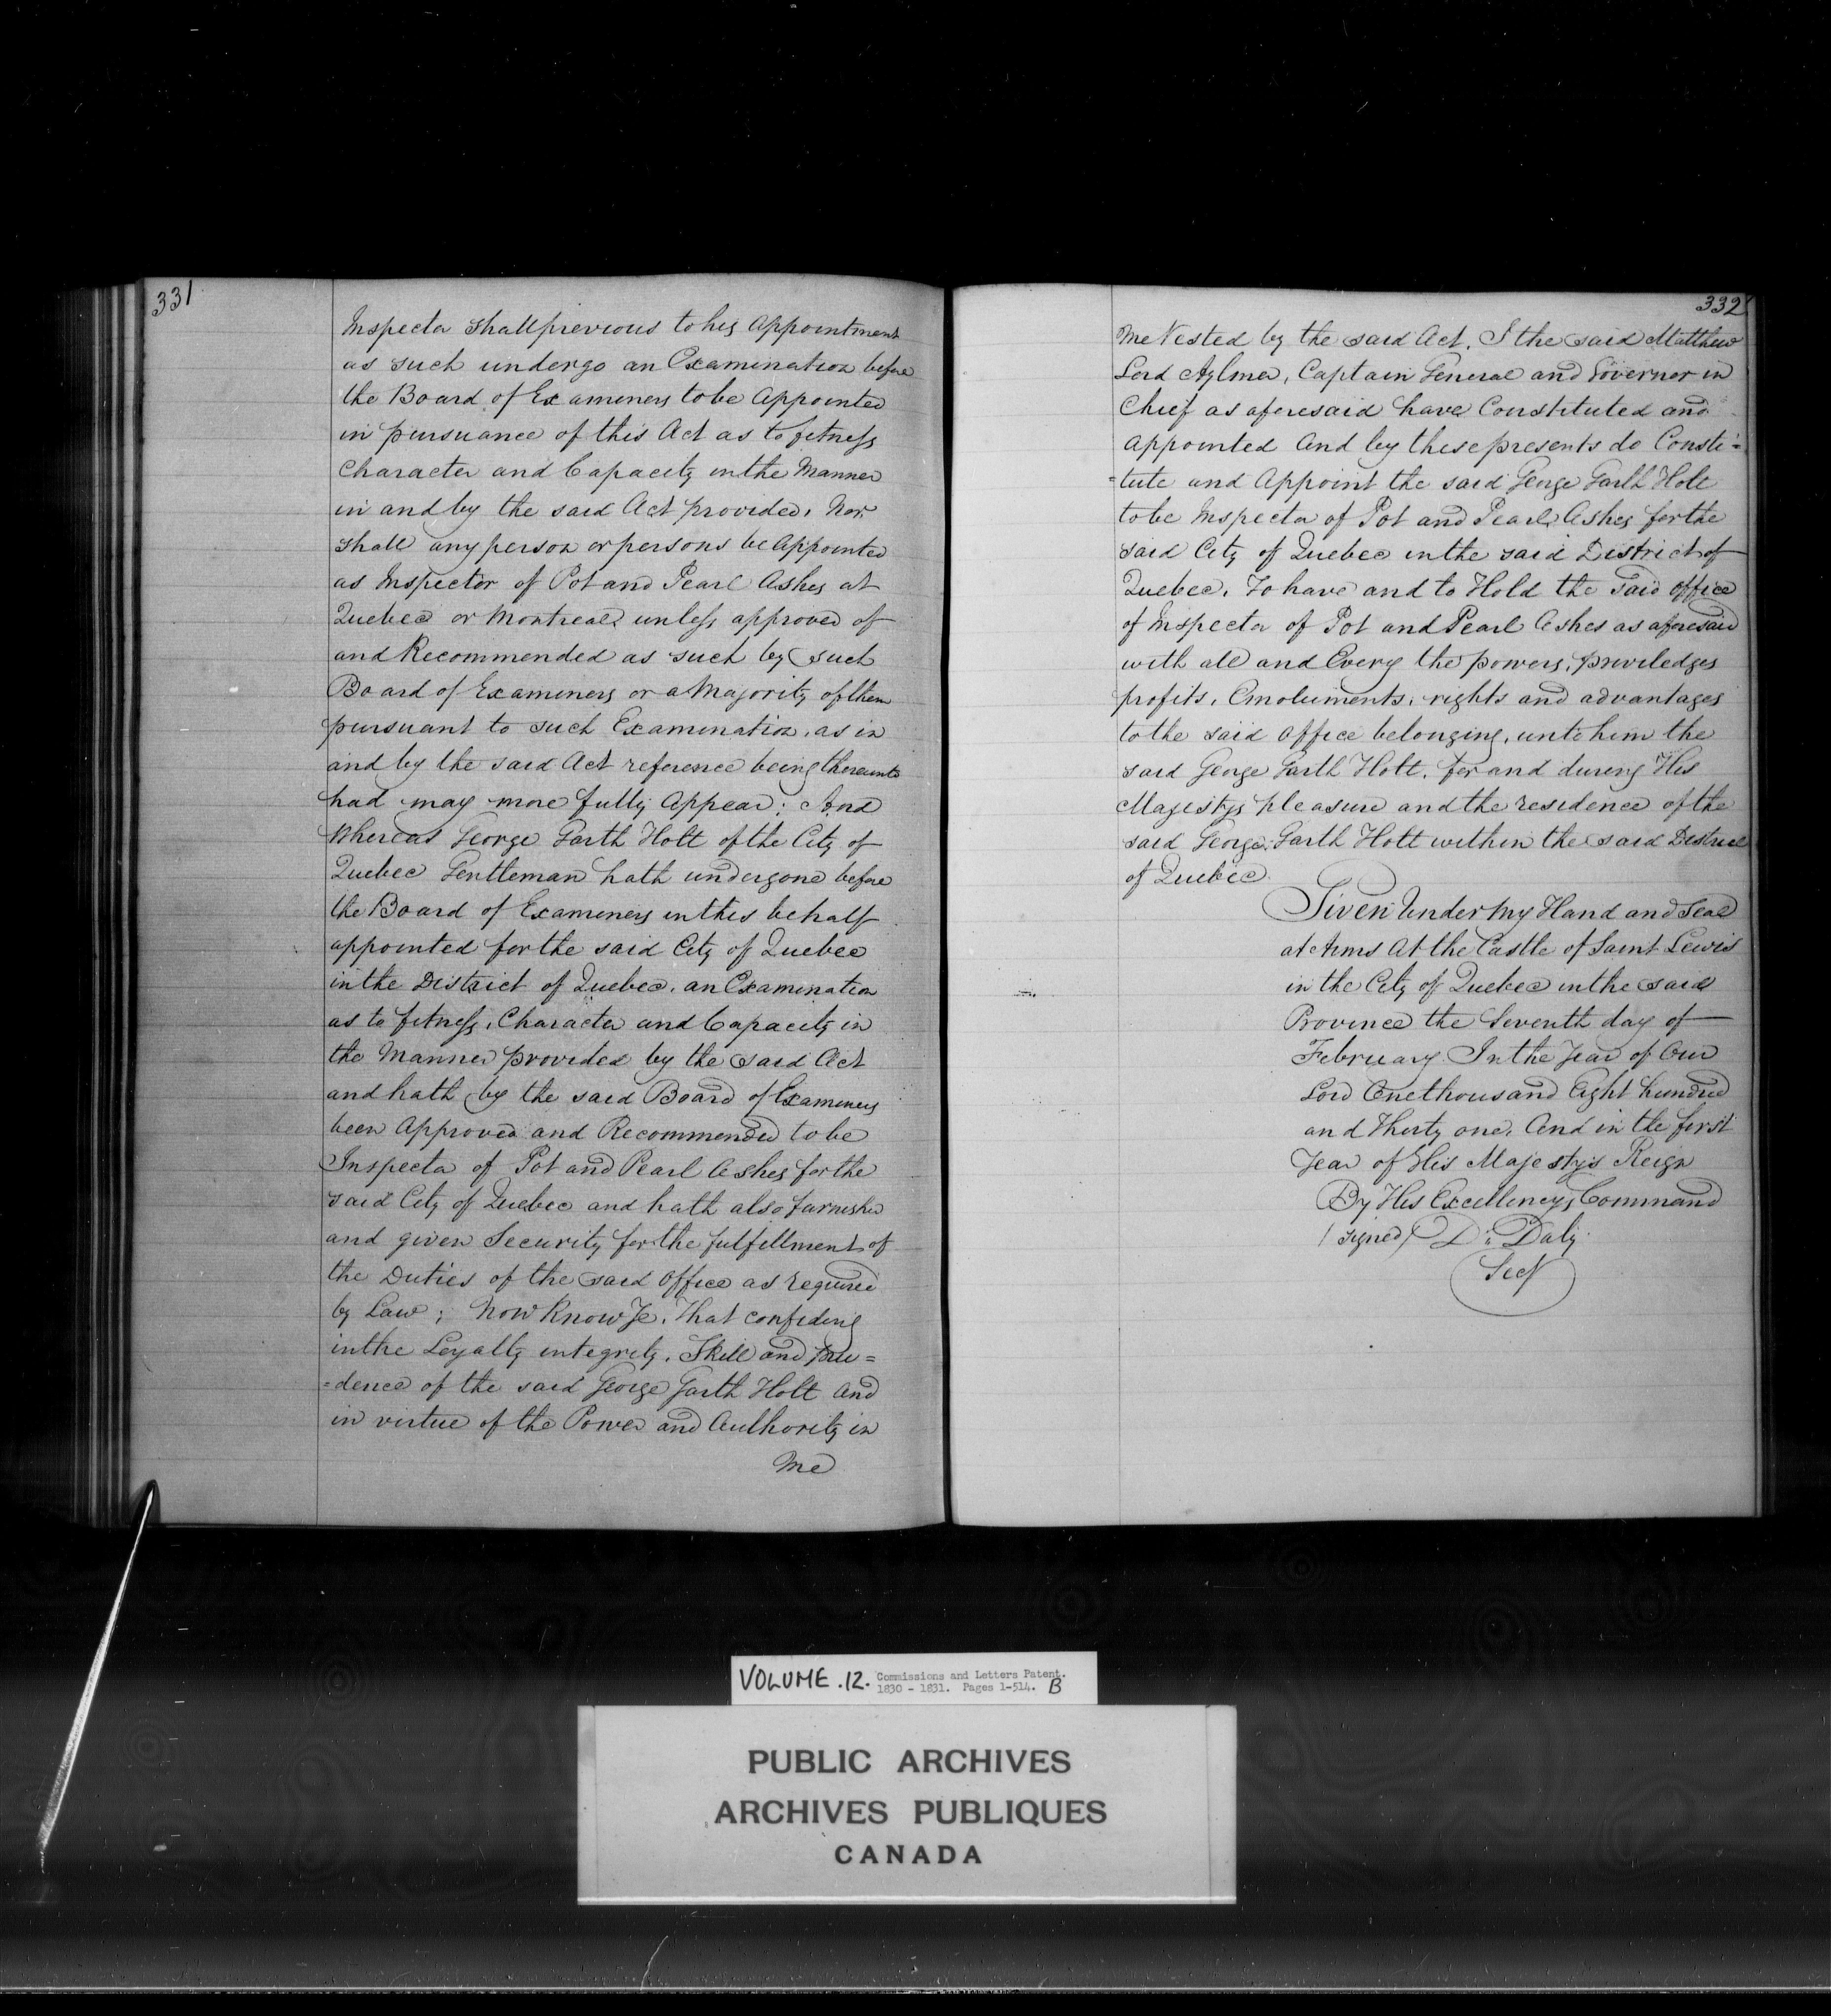 331
Inspector shall previous to his Appointment
as such undergo an Examination before
the Board of Examiners to be Appointed
in pursuance of this Act as to fitness
Character and Capacity in the Manner
in and by the said Act provided, Nor
shall any person or persons be Appointed
as Inspector of Pot and Pearl Ashes at
Quebec or Montreal unless approved of
and Recommended as such by such
Board of Examiners or a Majority of them
pursuant to such Examination, as in
and by the said Act reference being thereunto
had may more fully Appear; And
Whereas George Garth Holt of the City of
Quebec Gentleman hath undergone before
the Board of Examiners in this behalf
appointed for the said City of Quebec
in the District of Quebec, an Examination
as to fitness, Character and Capacity in
the Manner provided by the said Act
and hath by the said Board of Examiners
been Approved and Recommended to be
Inspector of Pot and Pearl Ashes for the
said City of Quebec and hath also furnished
and given Security for the fulfillment of
the Duties of the said Office as required
by Law; Now Know Ye, That confiding
in the Loyalty integrity, Skill and pru=
=dence of the said George Garth Holt And
in virtue of the Power and Authority in
Me
332
Me Vested by the said Act, I the said Matthew
Lord Aylmer, Captain General and Governor in
Chief as aforesaid have Constituted and
appointed And by these presents do Consti=
=tute and Appoint the said George Garth Holt
to be Inspector of Pot and Pearl Ashes for the
said City of Quebec in the said District of
Quebec, To have and to Hold the said office
of Inspector of Pot and Pearl Ashes as aforesaid
with all and Every the powers, priviledges
profits, Emoluments, rights and advantages
to the said office belonging, unto him the
said George Garth Holt, for and during His
Majestys pleasure and the residence of the
said George Garth Holt within the said District
of Quebec.
Given Under My Hand and Seal
at Arms At the Castle of Saint Lewis
in the City of Quebec in the said
Province the Seventh day of
February In the Year of Our
Lord One thousand Eight hundred
and Thirty one, And in the first
Year of His Majesty's Reign
By His Excellencys Command
(Signed) D: Daly
Secy
VOLUME.12. Commissions and Letters Patent.
1830 - 1831. Pages 1-514. B
PUBLIC ARCHIVES
ARCHIVES PUBLIQUES
CANADA